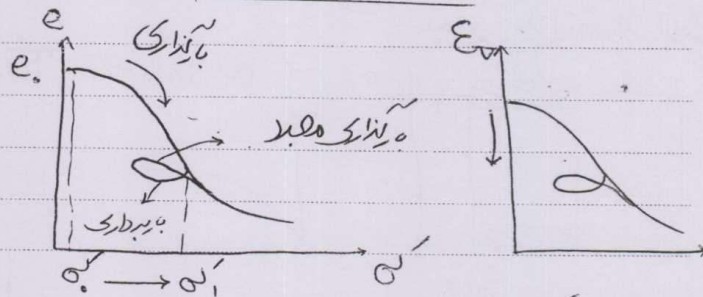 e
e₀
بارگذاری
بارگذاری مجدد
باربرداری
σ₀′ → σ₁′
σ′
εᵥ